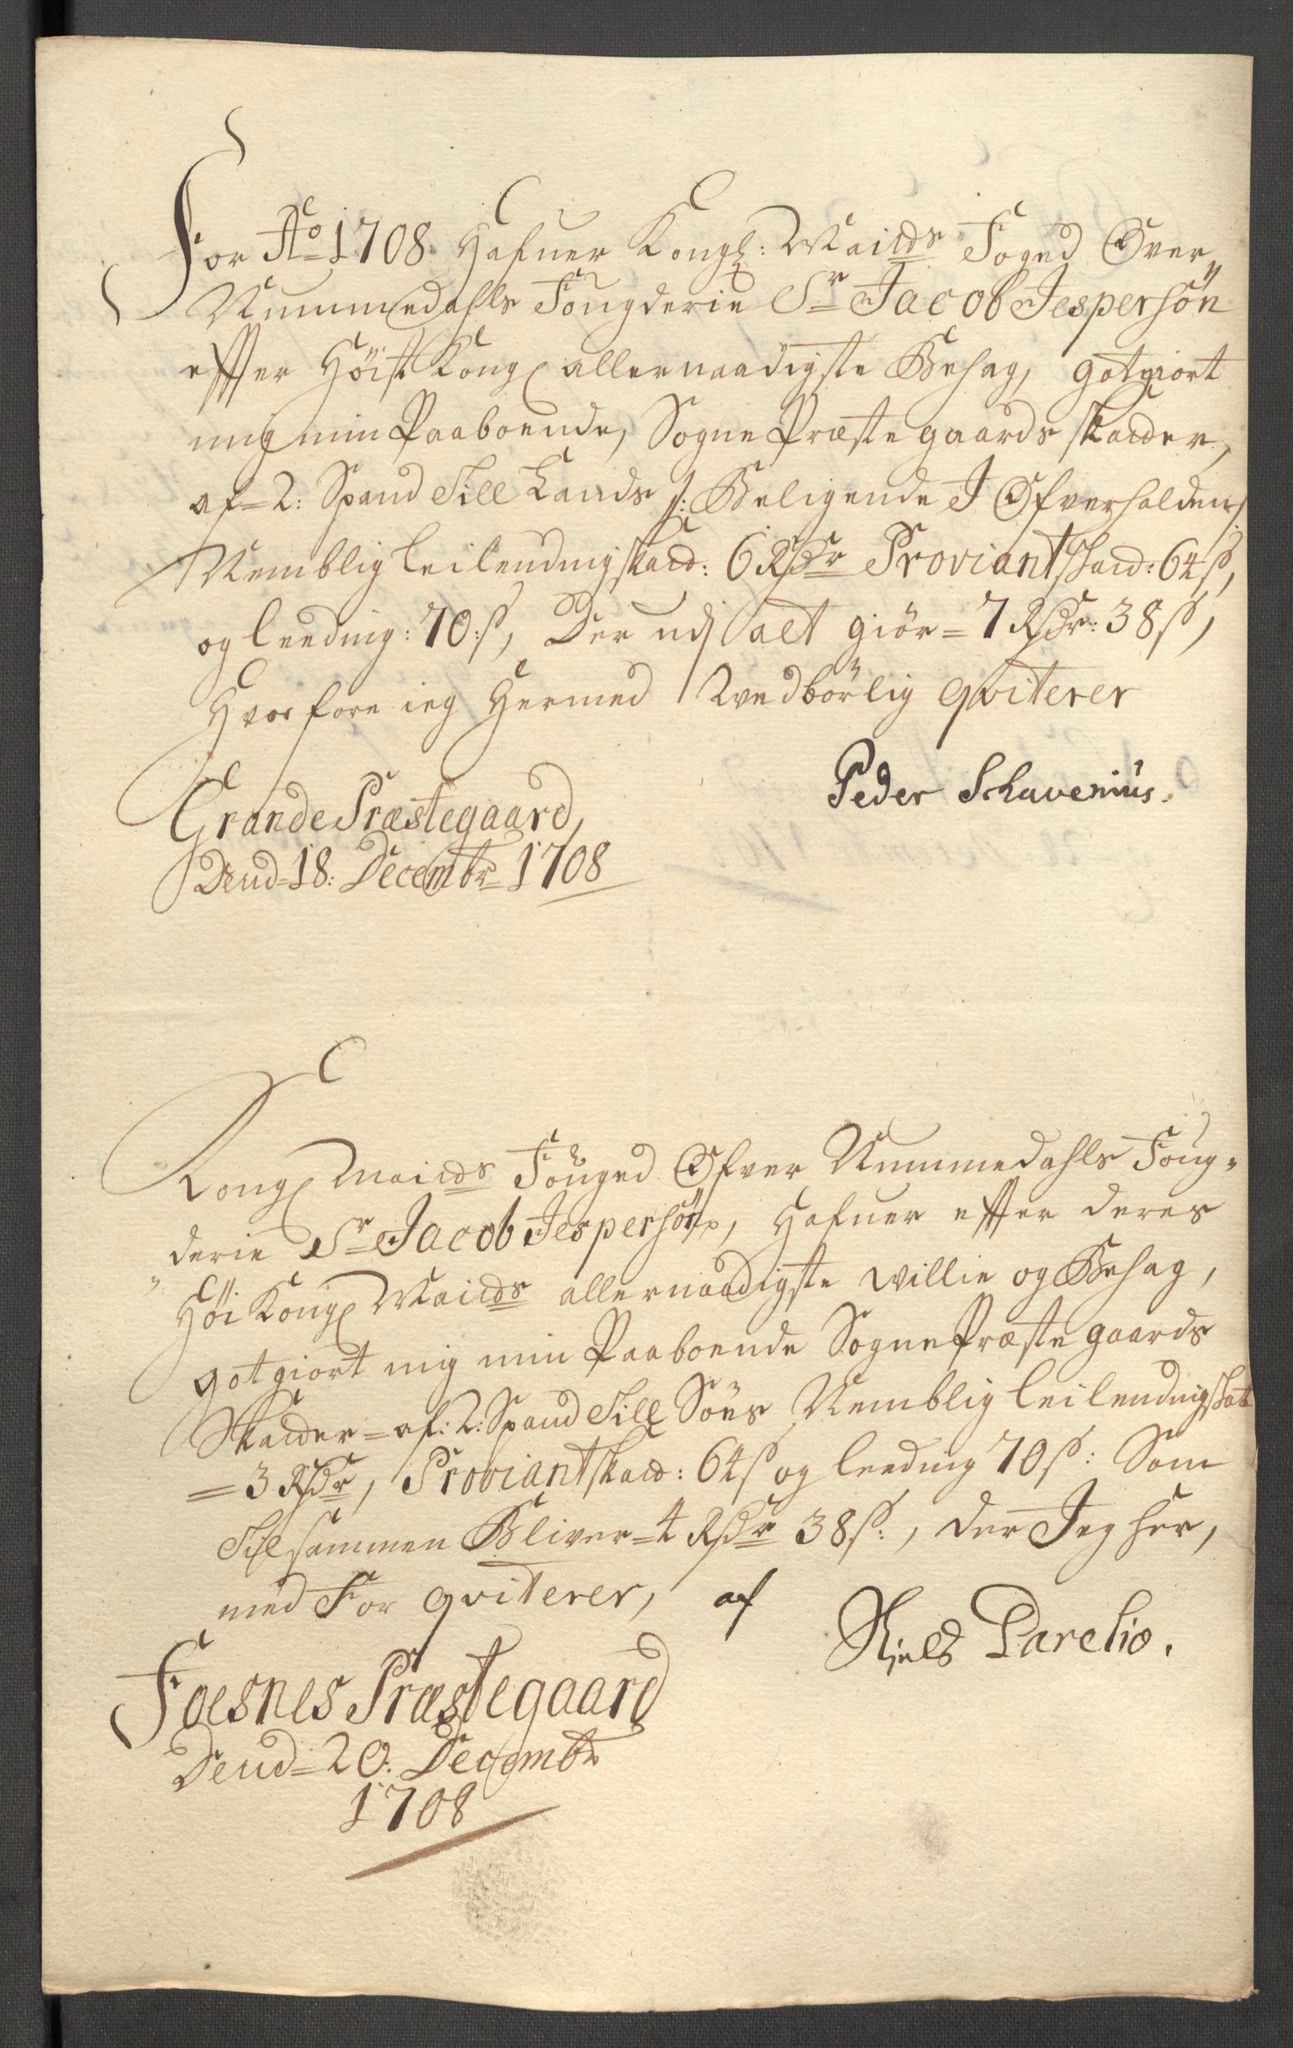 For Ao 1708. Hafuer Kongl: Maitds Foged Ofver
Nummedahls Fougderie Sr Jacob Jespersøn
effter Høist Kongl allernaadigste Behag, gotgiort
mig min Paaboende, Sogne Præste gaards skatter,
af = 2: Spand Till Lands /: Beligende J Ofverhalden /
Nemblig Leilendingskatt: 6 Rdr Proviantskatt: 64 s,
og Leeding: 70: s, Der udj alt giør = 7 Rdr: 38 s,
Hvor fore ieg Hermed Tvedbørlig qviterer
Peder Schavenius.
Grande Præstegaard,
Dend = 18: Decembr 1708
Kongl Maitds Fouged Ofver Nummedahls Foug=
derie Sr Jacob Jespersøn, Hafuer effter deres
Høi Kongl Maitds allernaadigste Willie og Behag,
gotgiort mig min Paaboende Sogne Præste gaards
Skatter = af: 2: Spand Till Søes Nemblig Leilendingskat
= 3 Rdr, Proviantskatt: 64 s og Leeding 70 s: Som
Tilsammen Bliver = 4 Rdr 38 s:, der Jeg her,
med For qviterer, af
Niels Parelio.
Foesnes Præstegaard
Dend = 20: Decembr
1708